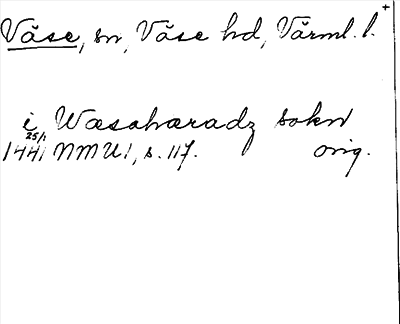 Väse, sn, Väse hd, Värml. l. +
i Wæsahæradz sokn
1441 25/1 NMU1, s. 117. orig.